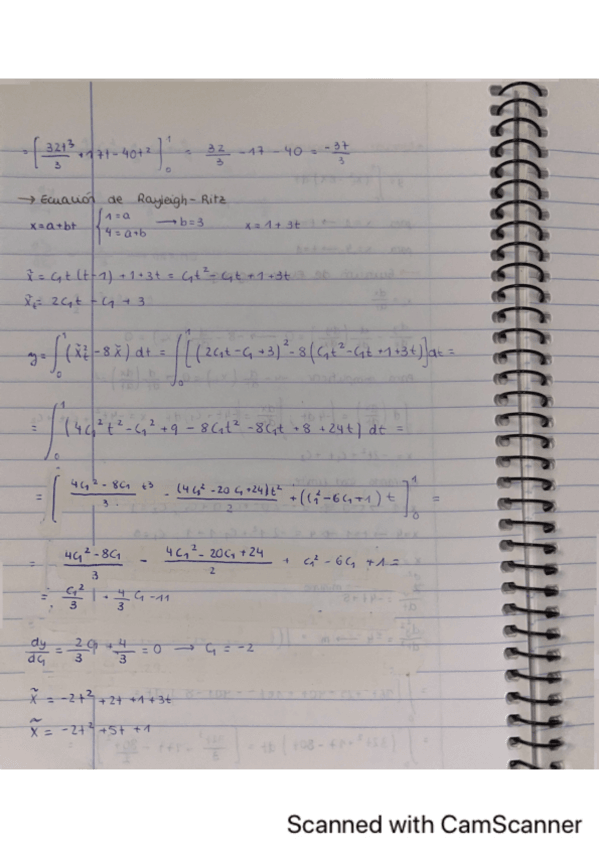 = [ 32t³/3 + 17t - 40t² ]₀¹ = 32/3 - 17 - 40 = -37/3
→ Ecuación de Rayleigh-Ritz
x = a+bt { 1 = a
4 = a+b → b = 3 x = 1+3t
x̃ = C₁t (t-1) + 1+3t = C₁t² - C₁t + 1+3t
x̃ₜ = 2C₁t - C₁ + 3
y = ∫₀¹ (x̃ₜ² - 8x̃) dt = ∫₀¹ [(2C₁t - C₁ + 3)² - 8(C₁t² - C₁t + 1 + 3t)] dt =
= ∫₀¹ (4C₁²t² - C₁² + 9 - 8C₁t² - 8C₁t + 8 + 24t) dt =
= [ (4C₁² - 8C₁)/3 t³ - (4C₁² - 20C₁ + 24)t²/2 + (C₁² - 6C₁ + 1) t ]₀¹ =
= (4C₁² - 8C₁)/3 - (4C₁² - 20C₁ + 24)/2 + C₁² - 6C₁ + 1 =
= C₁²/3 + 4/3 C₁ - 11
dy/dC₁ = 2C₁/3 + 4/3 = 0 → C₁ = -2
x̃ = -2t² + 2t + 1 + 3t
x̃ = -2t² + 5t + 1
Scanned with CamScanner